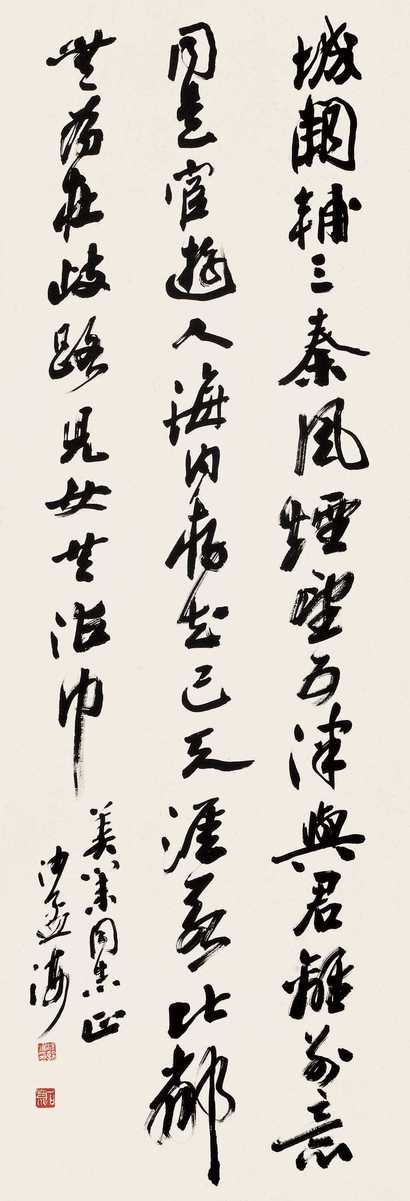 城闕輔三秦風煙望五津與君離別意
同是宦遊人海内存知己天涯若比鄰
無為在歧路兒女共沾巾
美同志正
沙孟海